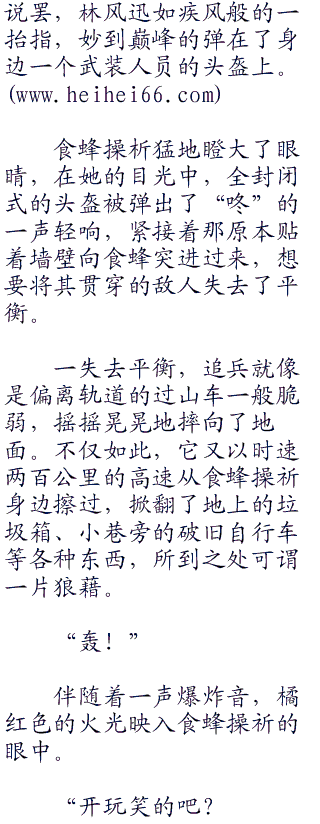 说罢，林风迅如疾风般的一
抬指，妙到巅峰的弹在了身
边一个武装人员的头盔上。
(www.heihei66.com)
食蜂操析猛地瞪大了眼
睛，在她的目光中，全封闭
式的头盔被弹出了“咚”的
一声轻响，紧接着那原本贴
着墙壁向食蜂突进过来，想
要将其贯穿的敌人失去了平
衡。
一失去平衡，追兵就像
是偏离轨道的过山车一般脆
弱，摇摇晃晃地摔向了地
面。不仅如此，它又以时速
两百公里的高速从食蜂操祈
身边擦过，掀翻了地上的垃
圾箱、小巷旁的破旧自行车
等各种东西，所到之处可谓
一片狼藉。
“轰！”
伴随着一声爆炸音，橘
红色的火光映入食蜂操祈的
眼中。
“开玩笑的吧？